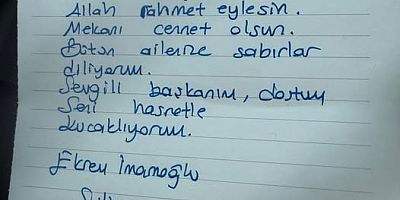 Allah rahmet eylesin.
Mekanı cennet olsun.
Bütün ailenize sabırlar
diliyorum.
Sevgili başkanım, dostum
Seni hasretle
kucaklıyorum.
Ekrem İmamoğlu